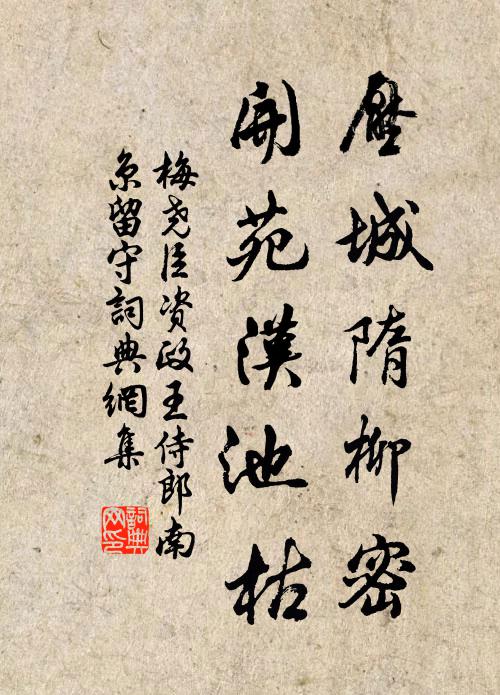 壓城隋柳密
開苑漢池枯
梅堯臣資政王侍郎南
京留守詞典網集
詞典
网印